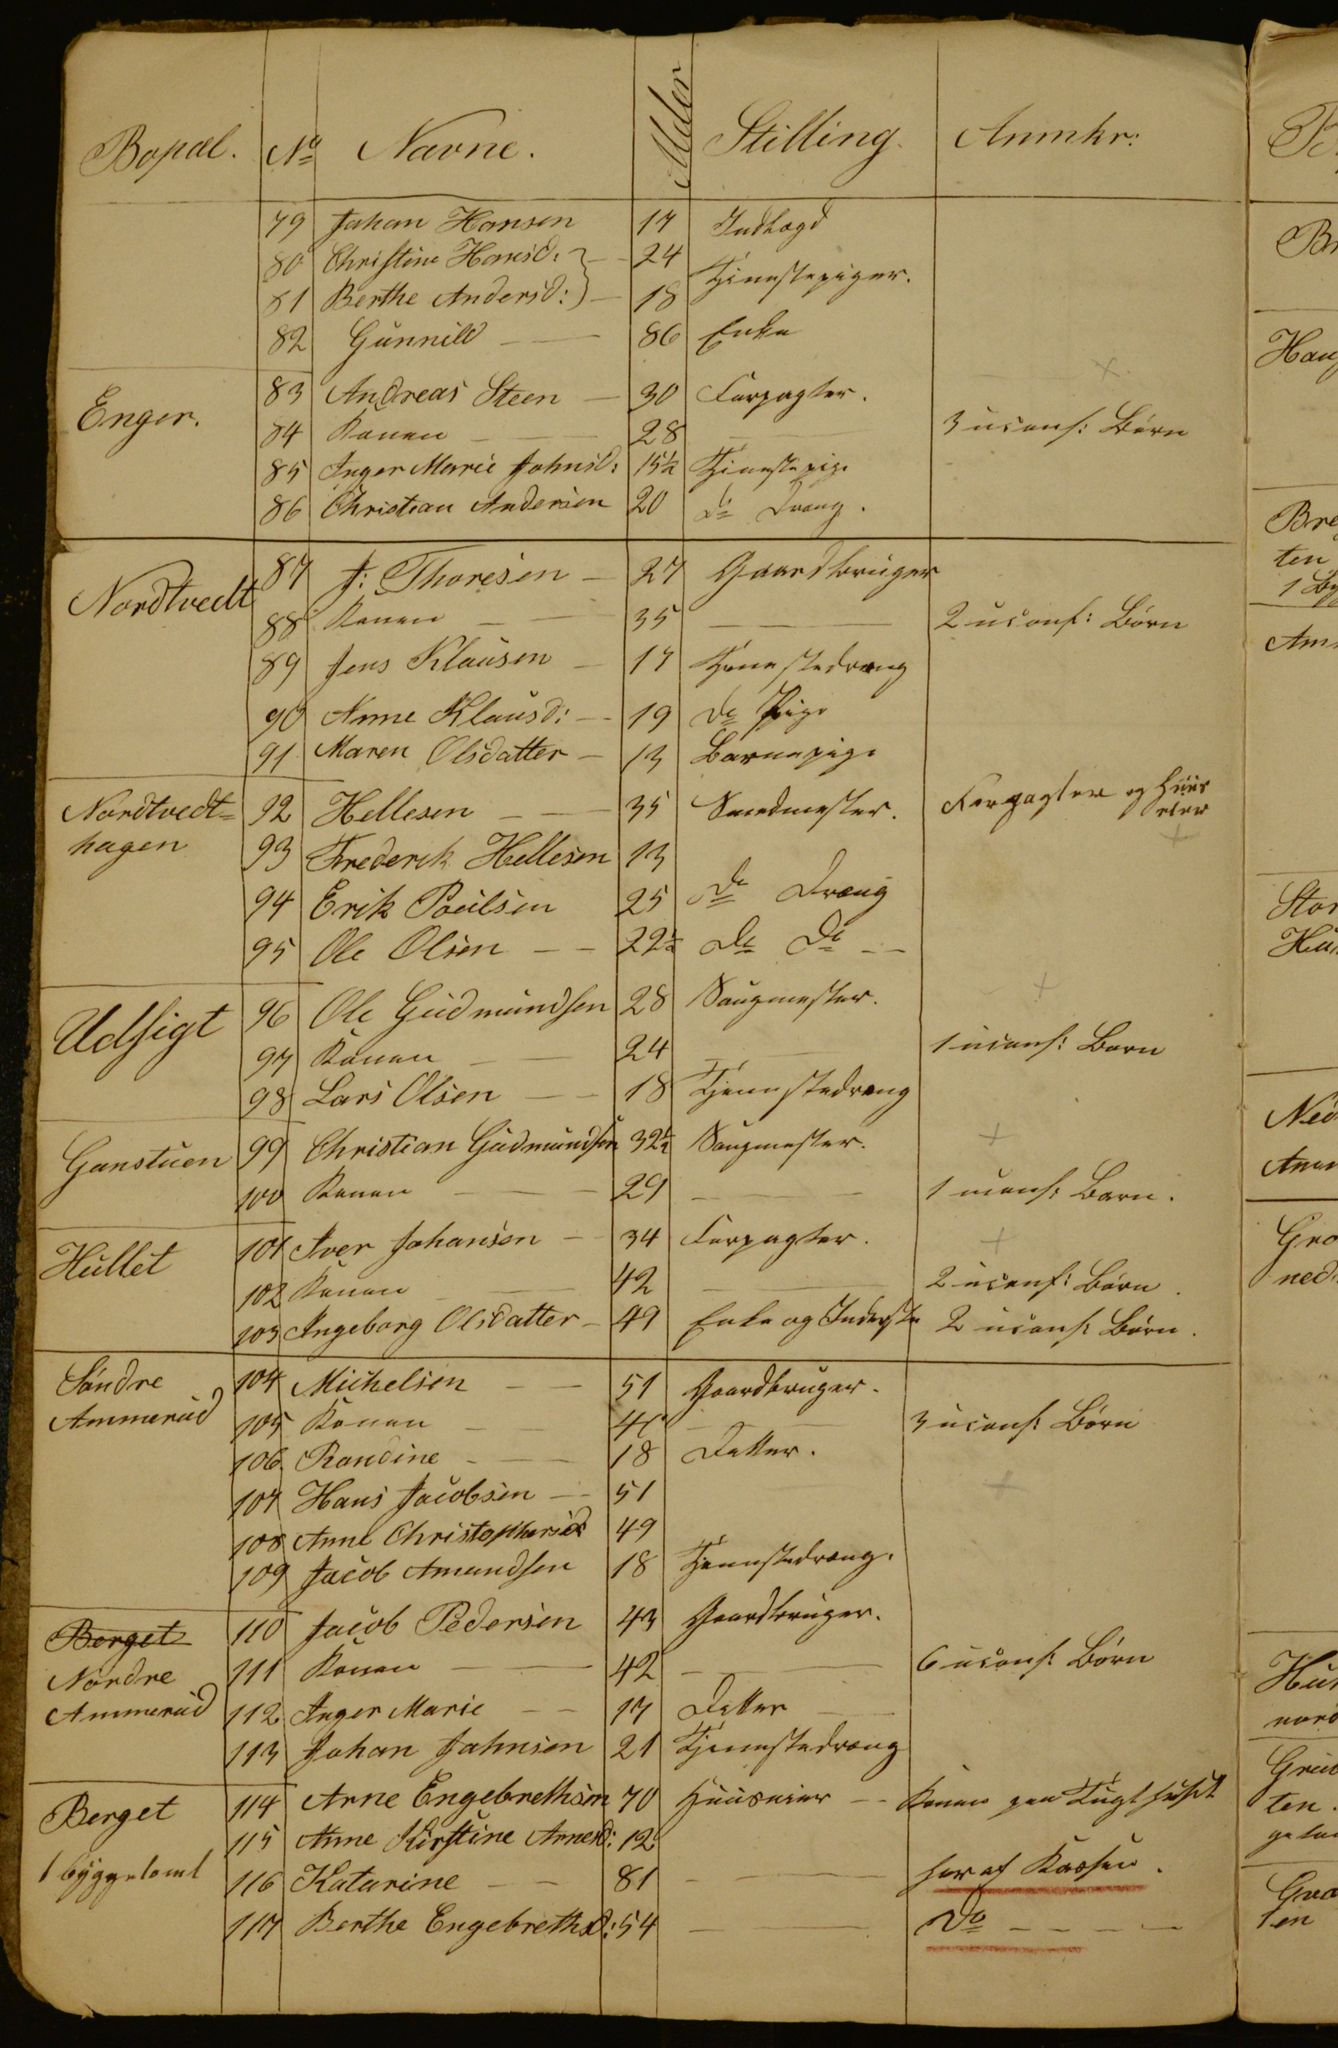 Bopæl. No Navne. Alder Stilling. Anmkr:
79 Johan Hansen 17 Indlagd
80 Christine Hansd: 24 Tjenestepiger.
81 Berthe Andersd: 18
82 Gunnild 86 Enke
Enger. 83 Andreas Steen 30 Forpagter.
84 Konen 28 3 uconf: Børn
85 Inger Marie Johnsd: 15½ Tjenestepige
86 Christian Andersen 20 do Dreng.
Nordtvedt 87 J: Thoresen 27 Gaardbruger
88 Konen 35 2 uconf: Børn
89 Jens Klausen 17 Tjenestedreng
90 Anne Klausd: 19 do Pige
91 Maren Olsdatter 13 Barnepige
Nordtvedt= 92 Hellesen 35 Smedmester. Forpagter og Huus
eier
hagen 93 Frederik Hellesen 13
94 Erik Poulsen 25 do Dreng
95 Ole Olsen 22½ do do
Udsigt 96 Ole Gudmundsen 28 Saugmester.
97 Konen 24 1 uconf: Barn
98 Lars Olsen 18 Tjenestedreng
Ganstuen 99 Christian Gudmundsen 32½ Saugmester.
100 Konen 29 1 uconf: Barn.
Hullet 101 Iver Johansen 34 Forpagter.
102 Konen 42 2 uconf: Børn.
103 Ingeborg Olsdatter 49 Enke og Inderste 2 uconf: Børn.
Søndre 104 Michelsen 51 Gaardbruger.
Ammerud 105 Konen 3 uconf: Børn
106. Randine 18 Datter.
107 Hans Jacobsen 51
108 Anne Christophersd: 49
109 Jacob Amundsen 18 Tjenestedreng.
Berget 110 Jacob Pedersen 43 Gaardbruger.
Nordre 111 Konen 42 6 uconf: Børn
Ammerud 112 Inger Marie 17 Datter
113 Johan Johnsen 21 Tjenestedreng
Berget 114 Arne Engebrethsen 70 Huuseier Konen paa Tugthuset
115 Anne Kirstine Arnesd: 12
1 byggelaml 116 Katarine 81 har af Kassen.
117 Berthe Engebrethsd: 54 Do
B
Br
Hau
Bre
ten
1 By
Am
Stor
Hu
Ned
Am
Gro
ned
Hu
nord
Gru
ten.
Gra
ten